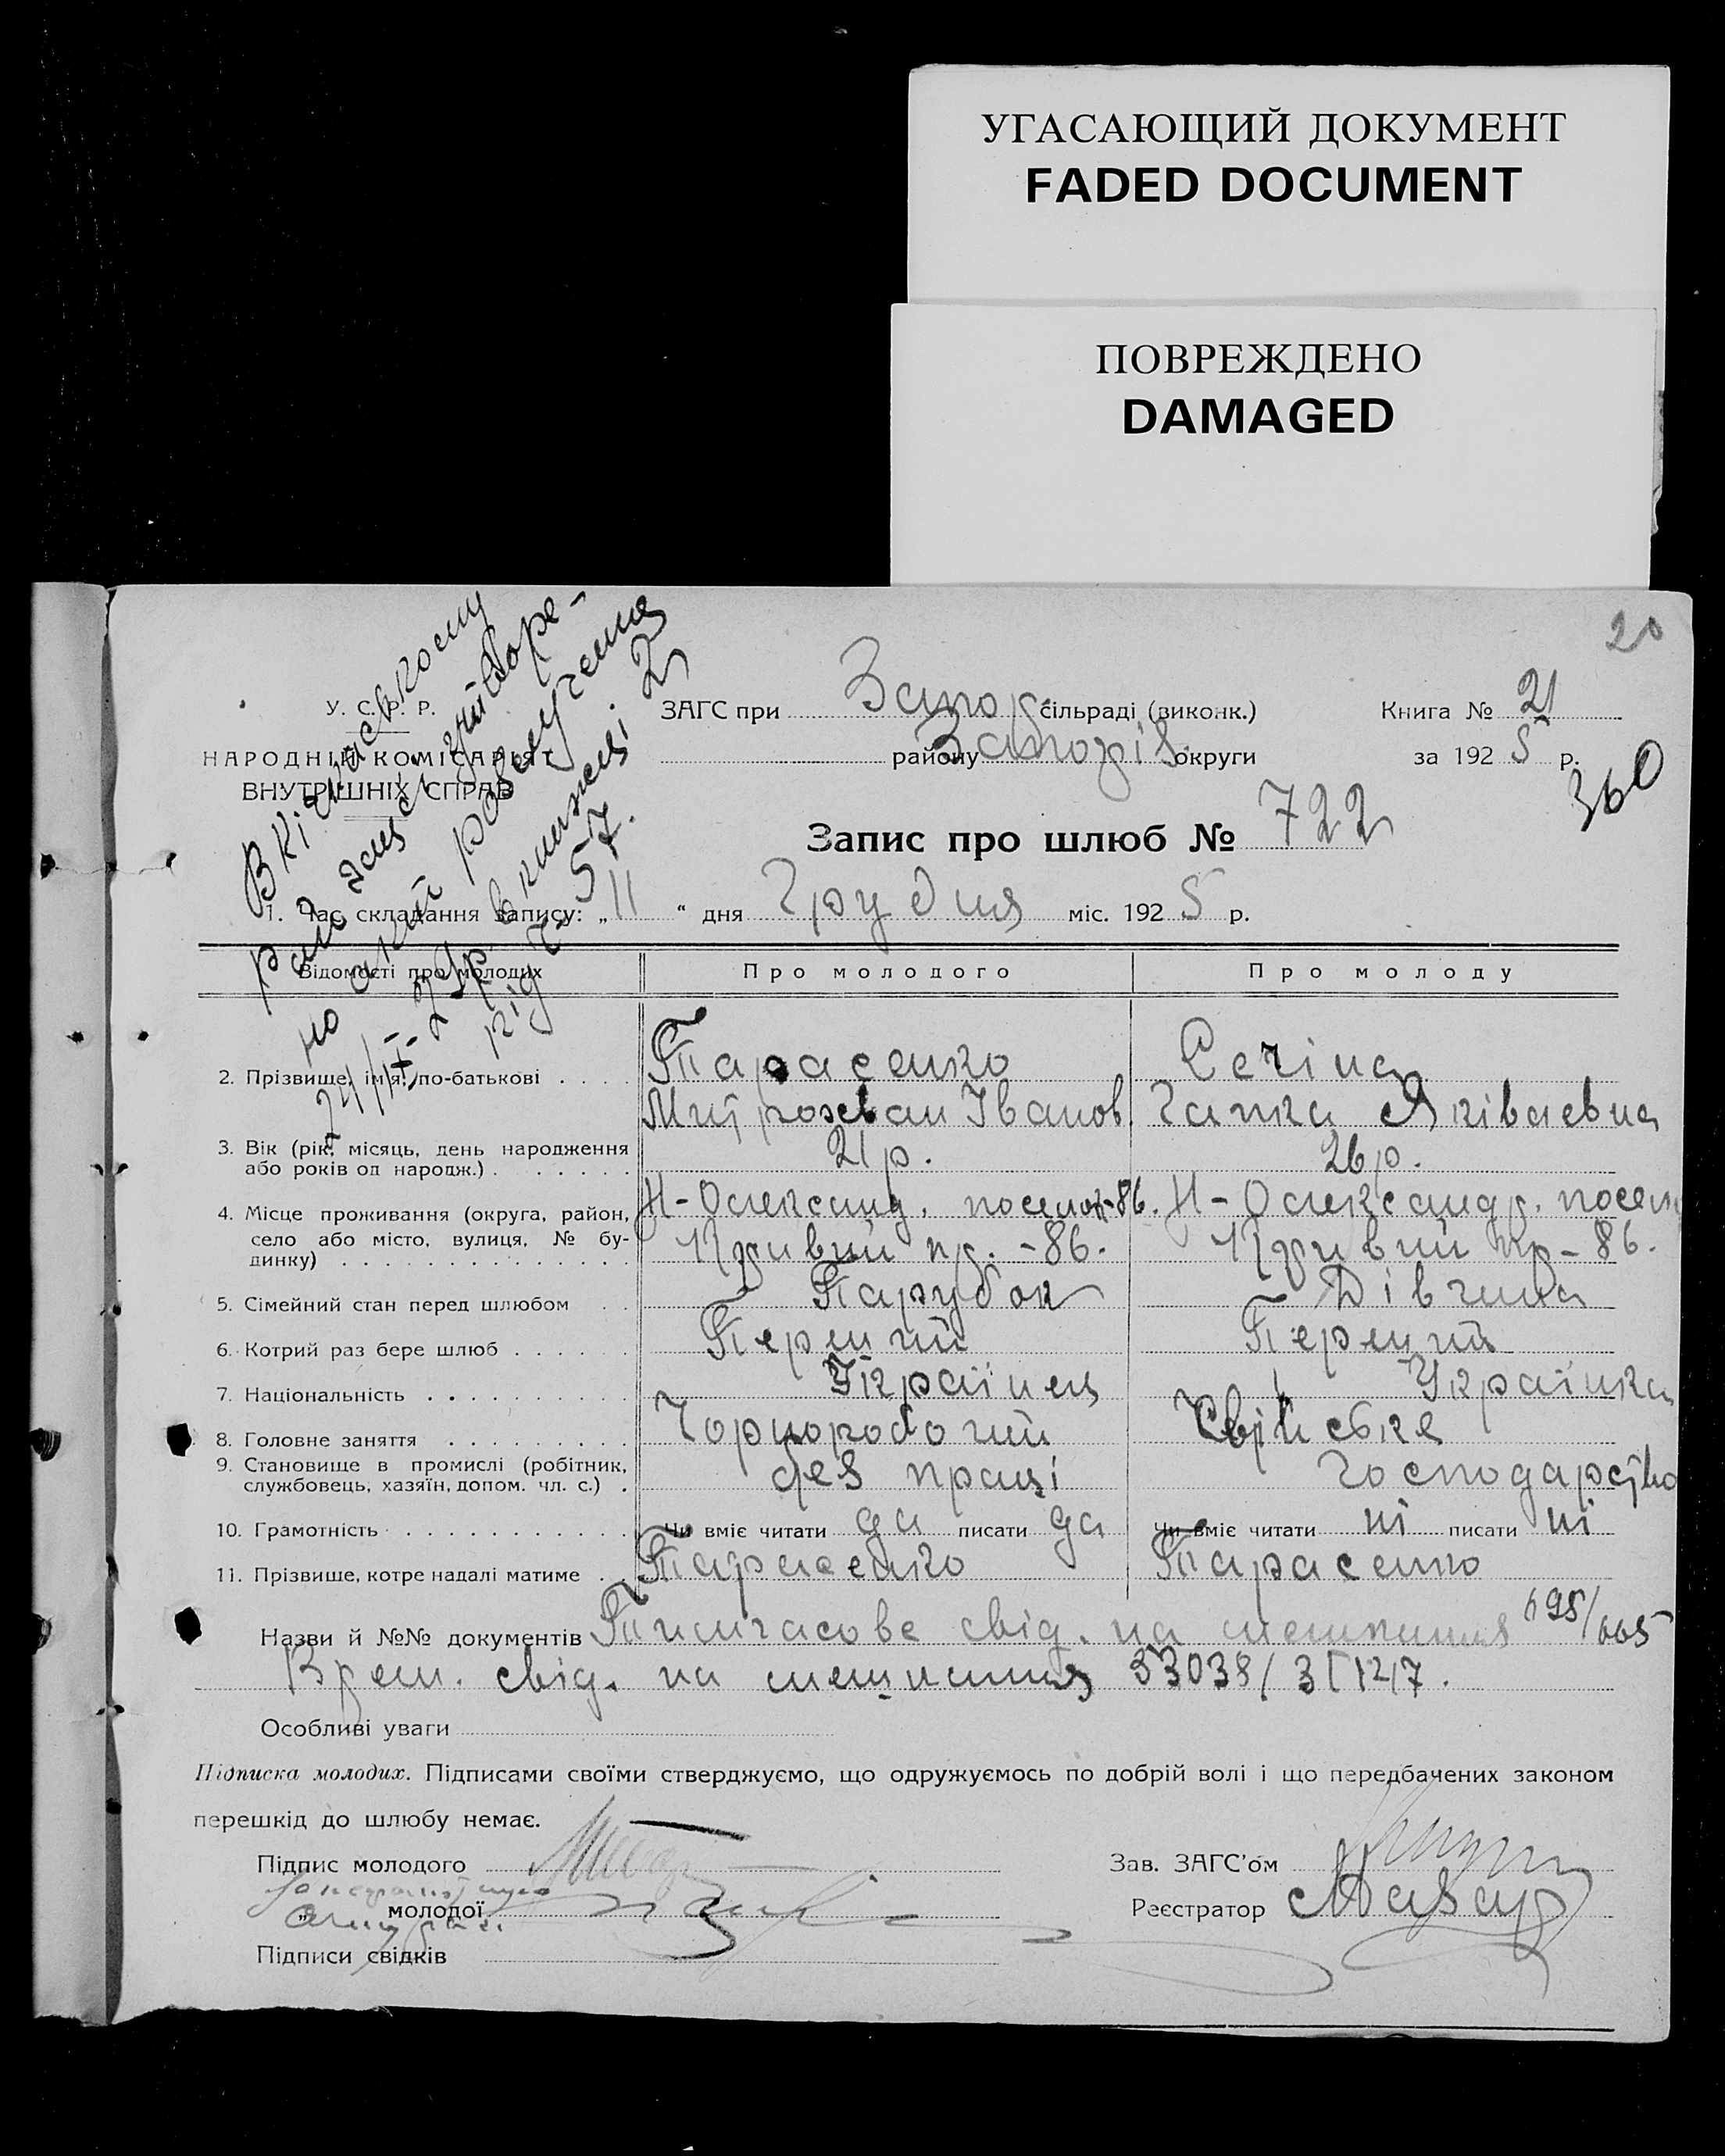 УГАСАЮЩИЙ ДОКУМЕНТ
FADED DOCUMENT
ПОВРЕЖДЕНО
DAMAGED
20
У. С. Р. Р.
НАРОДНІЙ КОМІСАРІЯТ
ВНУТРІШНІХ СПРАВ
ЗАГС при Запор. сільраді (виконк.)
району Запоріз округи
Книга № 21
за 1925 р.
360
Запис про шлюб № 722
1. Час складання запису: „11“ дня Грудня міс. 1925 р.
розлучення
в книжці 2
під № 57.
Відомості про молодих
Про молодого
Про молоду
2. Прізвище, ім'я, по-батькові . . . . Тарасенко Сечіна
Митрохван Іванов. Гапка Яківаевна
3. Вік (рік, місяць, день народження або років од народж.) . . . . . . 21 р. 26 р.
4. Місце проживання (округа, район, село або місто, вулиця, № будинку) . . . . . Н-Олександ. поселок-86. Н-Олександр. посел
Кривий пр. -86. Кривий пр-86.
5. Сімейний стан перед шлюбом . . Парубок Дівчина
6. Котрий раз бере шлюб . . . . . . Перший Перший
7. Національність . . . . . . . . . Українец Українка
8. Головне заняття . . . . . . . . . Чорноробочий Свійське
9. Становище в промислі (робітник, службовець, хазяїн, допом. чл. с.) . без праці господарство
10. Грамотність . . . . . . . . . . . Чи вміє читати да писати да Чи вміє читати ні писати ні
11. Прізвище, котре надалі матиме . . Тарасенко Тарасенко
Назви й №№ документів Тимчасове свід. на мешкання 695/665
Врем. свід. на мешкання 53038/31127.
Особливі уваги
Підписка молодих. Підписами своїми стверджуємо, що одружуємось по добрій волі і що передбачених законом
перешкід до шлюбу немає.
Підпис молодого
Зав. ЗАГС'ом
„ молодої
Реєстратор
Підписи свідків